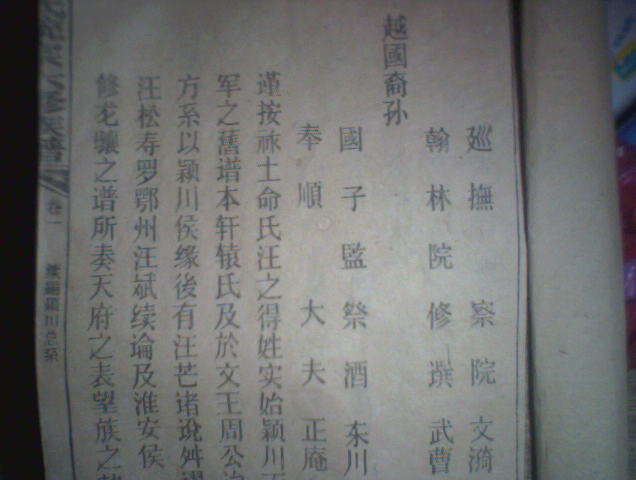 廵撫　察院文漪
翰林院修選武曹
國子監祭酒东川
奉順　大夫正庵
越國裔孙
谨按祚土命氏汪之得姓实始颖川
军之舊谱本轩辕氏及於文王周公
方系以颖川侯缘後有汪芒诸说舛
汪松寿罗鄂州汪斌续论及淮安侯
修龙骧之谱所奏天府之表望族之
六修族譜
卷一
颖川总系